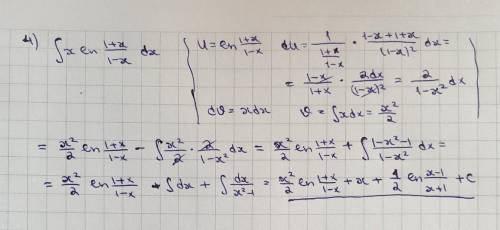 4) ∫ x ln (1+x)/(1-x) dx | U = ln (1+x)/(1-x) dU = 1/((1+x)/(1-x)) · (1-x+1+x)/(1-x)² dx =
= (1-x)/(1+x) · 2dx/(1-x)² = 2/(1-x²) dx
dϑ = xdx ϑ = ∫xdx = x²/2
= x²/2 ln (1+x)/(1-x) - ∫ x²/2 · 2/(1-x²) dx = x²/2 ln (1+x)/(1-x) + ∫ (1-x²-1)/(1-x²) dx =
= x²/2 ln (1+x)/(1-x) + ∫dx + ∫ dx/(x²-1) = x²/2 ln (1+x)/(1-x) + x + 1/2 ln (x-1)/(x+1) + C